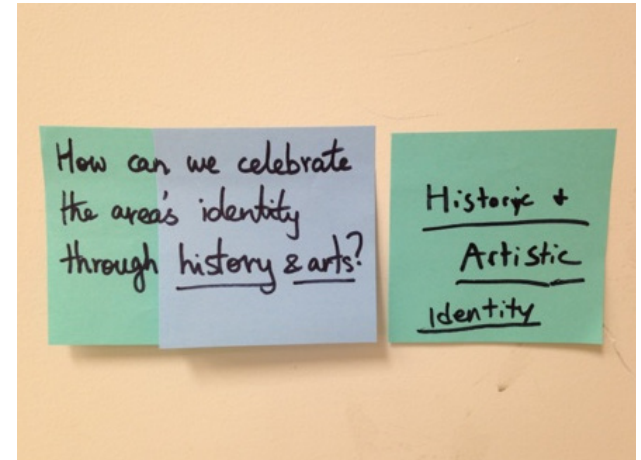 How can we celebrate
the area's identity
through history & arts?
Historic +
Artistic
Identity